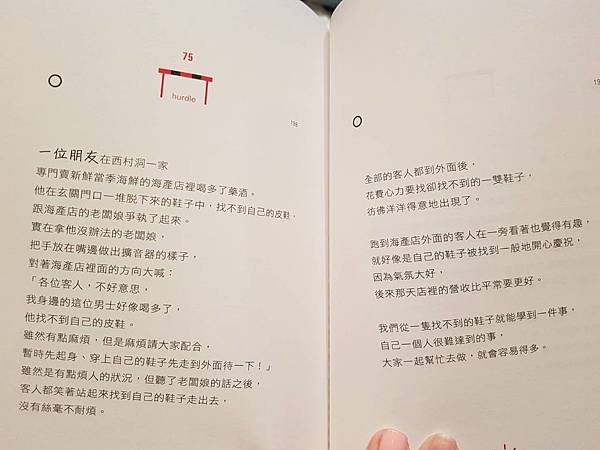 75
hurdle
198
一位朋友在西村洞一家
專門賣新鮮當季海鮮的海產店裡喝多了藥酒。
他在玄關門口一堆脫下來的鞋子中，找不到自己的皮鞋，
跟海產店的老闆娘爭執了起來。
實在拿他沒辦法的老闆娘，
把手放在嘴邊做出擴音器的樣子，
對著海產店裡面的方向大喊：
「各位客人，不好意思，
我身邊的這位男士好像喝多了，
他找不到自己的皮鞋。
雖然有點麻煩，但是麻煩請大家配合，
暫時先起身、穿上自己的鞋子先走到外面待一下！」
雖然是有點煩人的狀況，但聽了老闆娘的話之後，
客人都笑著站起來找到自己的鞋子走出去，
沒有絲毫不耐煩。
全部的客人都到外面後，
花費心力要找卻找不到的一雙鞋子，
彷彿洋洋得意地出現了。
跑到海產店外面的客人在一旁看著也覺得有趣，
就好像是自己的鞋子被找到一般地開心慶祝，
因為氣氛大好，
後來那天店裡的營收比平常要更好。
我們從一隻找不到的鞋子就能學到一件事，
自己一個人很難達到的事，
大家一起幫忙去做，就會容易得多。